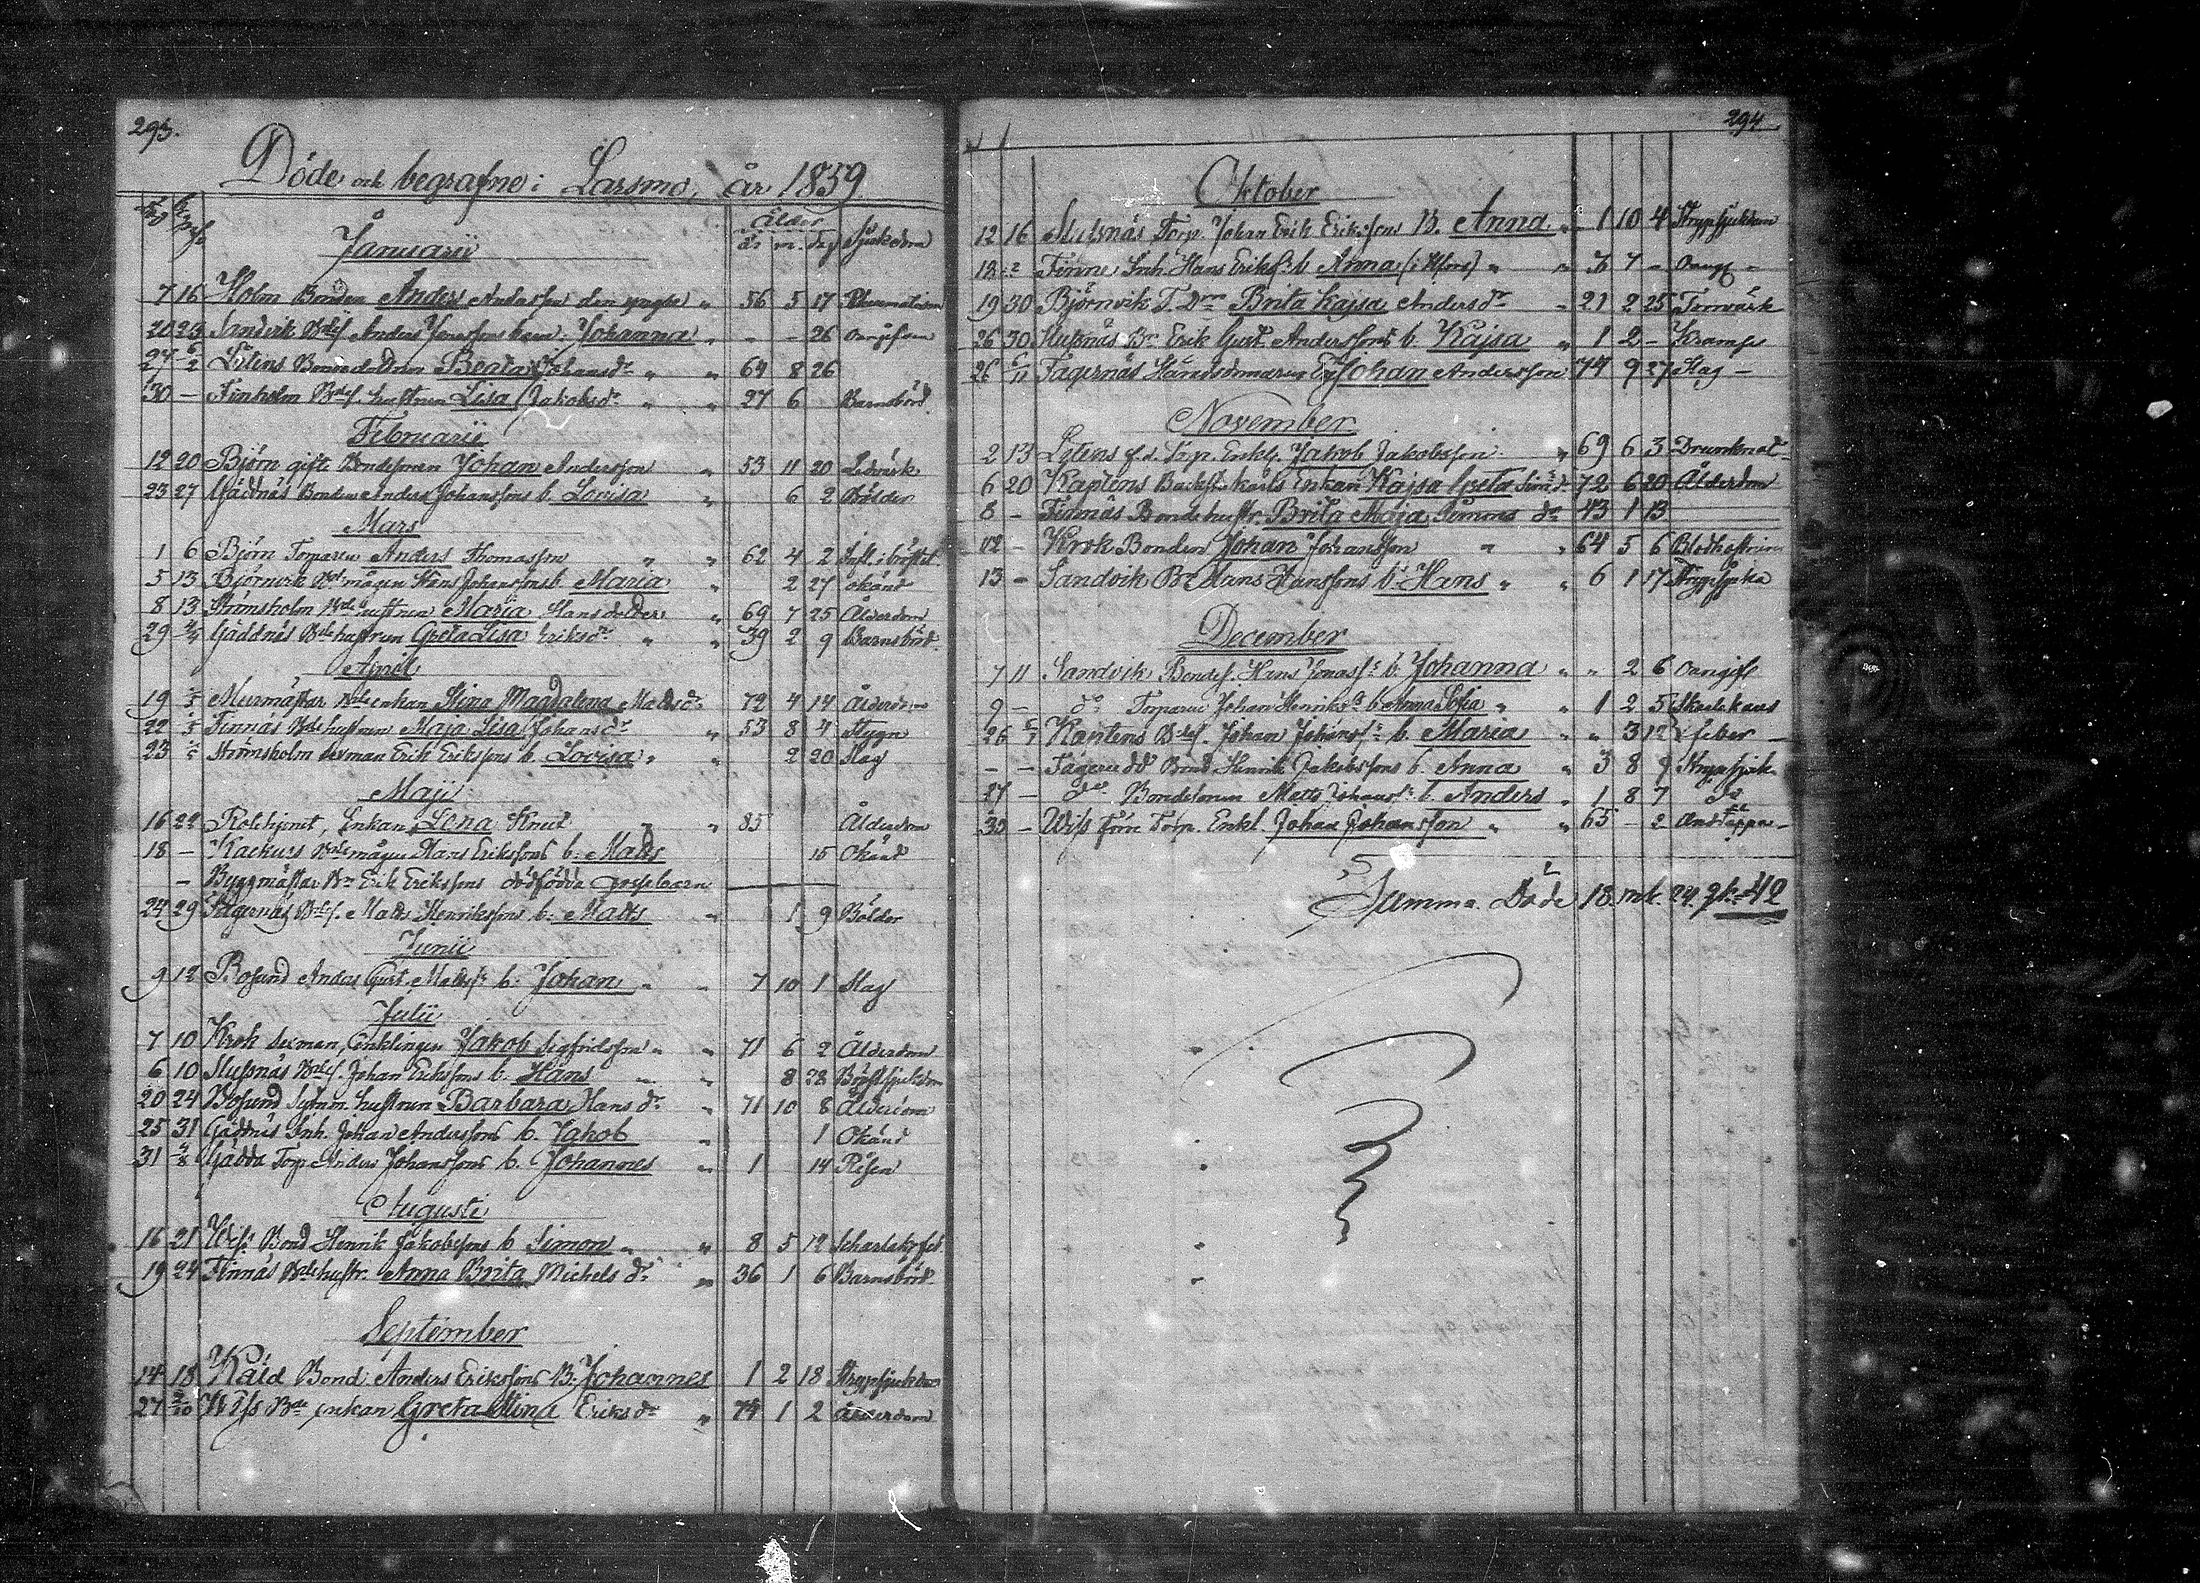 293.
Döde och begrafne i Larsmo, år 1859.
död begr. Ålder
år m. dag Sjukdom
Januarii
7 16 Holm Bonden Anders Andersson den yngre " 56 5 17 Rheumatism
20 23 Sandvik Bdes Anders Jonassons barn Johanna " - - 26 Oangifven
27 6/2 Litens Bondedottren Beata Johansdr " " 64 8 26
30 - Finholm Bdes. hustrun Lisa Jakobsdr " " 27 6 Barnsbörd
Februarii
12 20 Björn gifte Bondesonen Johan Andersson " 53 11 20 Ledvärk
23 27 Gäddnäs Bonden Anders Johanssons b. Lovisa " 6 2 Bölder
Mars
1 6 Björn Torparen Anders Thomasson " " 62 4 2 Infl. i bröstet
5 13 Björnvik Bdemågen Hans Johanssons b. Maria " 2 27 okänd
8 13 Strömsholm Bdehustrun Maria Hansdotter " 69 7 25 Ålderdom
29 3/4 Gäddnäs Bdehustrun Greta Lisa Eriksdr " " 39 2 9 Barnsbörd
April
19 1/5 Murmästar Bdeenkan Stina Magdalena Mattsdr 72 4 14 Ålderdom
22 1/5 Finnäs Bdehustrun Maja Lisa Johansdr " 53 8 4 Stygn
23 Strömsholm Sexman Erik Erikssons b. Lovisa " " 2 20 Slag
Maji
16 22 Rotehjonet, Enkan Lena Knut " " 85 Ålderdom
18 - Kackurs Bdemågen Hans Erikssons b. Matts 15 Okänd
- Byggmästar Bn Erik Erikssons dödfödda gossebarn
24 29 Fagernäs Bdes. Matts Henrikssons b. Matts " 1 9 Bölder
Junii
9 12 Bosund Anders Gust. Mattss: b. Johan " " 7 10 1 Slag
Julii
7 10 Krok Sexman, Enklingen Jakob Sigfridsson " " 71 6 2 Ålderdom
6 10 Slussnäs Bdes. Johan Erikssons b. Hans " " 8 28 Bröstsjukdom
20 24 Bosund Sytnin. hustrun Barbara Hansdr " 71 10 8 Ålderdom
25 31 Gäddnäs Inh. Johan Anderssons b. Jakob " 1 Okänd
31 7/8 Gädda Torp Anders Johanssons b. Johannes " 1 14 Risen
Augusti
16 21 Wiss Bond Henrik Jakobssons b Simon " " 8 5 12 Scharlakrfeb.
19 24 Finnäs Bdehustr. Anna Brita Michelsdr " 36 1 6 Barnsbörd
September
14 18 Kåld Bond. Anders Erikssons B. Johannes 1 2 18 Strypsjukdom
27 2/10 Wiss Bde enkan Greta Stina Eriksdr " 74 1 2 Ålderdom
294
Oktober
12 16 Slussnäs Torp. Johan Erik Erikssons B. Anna " 1 10 4 Strypsjukdom
12 Finne Inh. Hans Erikss: b Anna (i Hfors) " " 7 - Oangif -
19 30 Björnvik T. Drn Brita Kajsa Andersdr " 21 2 25 Torrvärk
26 30 Slussnäs Bn Erik Gust. Anderssons b. Kajsa " 1 2 - Kramp
26 6/11 Fagernäs Häradsdomaren E. Johan Andersson 74 9 27 Slag -
November
2 13 Litens f.d. Torp. Enkl. Jakob Jakobsson " 69 6 3 Drunknat
6 20 Kaptens Backst. karls Enkan Kajsa Greta Simsd. 72 6 20 Ålderdom
8 - Finnäs Bondehustr. Brita Maja Simons dr 43 1 13
12 - Krok Bonden Johan Johansson " " 64 5 6 Blodhostning
13 - Sandvik Bn Hans Hanssons b. Hans " " 6 1 17 Strypsjuka
December
7 11 Sandvik Bondes. Hans Jonass: b. Johanna " " 2 6 Oangif
9 - do Torparen Johan Henrikss b Anna Sofia " " 1 2 5 Skarlakans
26 6/1 Kaptens Bdes. Johan Johanss: b. Maria " " 3 12 feber -
- - Fagerudd Bond Henrik Jakobssons b. Anna " 3 8 9 Strypsjuk
27 - do Bondesonen Matts Johanss: b. Anders " 1 8 7 do
30 - Wiss förn Torp. Enkl. Johan Johansson " " 65 - 2 Andtäppa
Summa Döde 18. mk. 24. qk. = 42